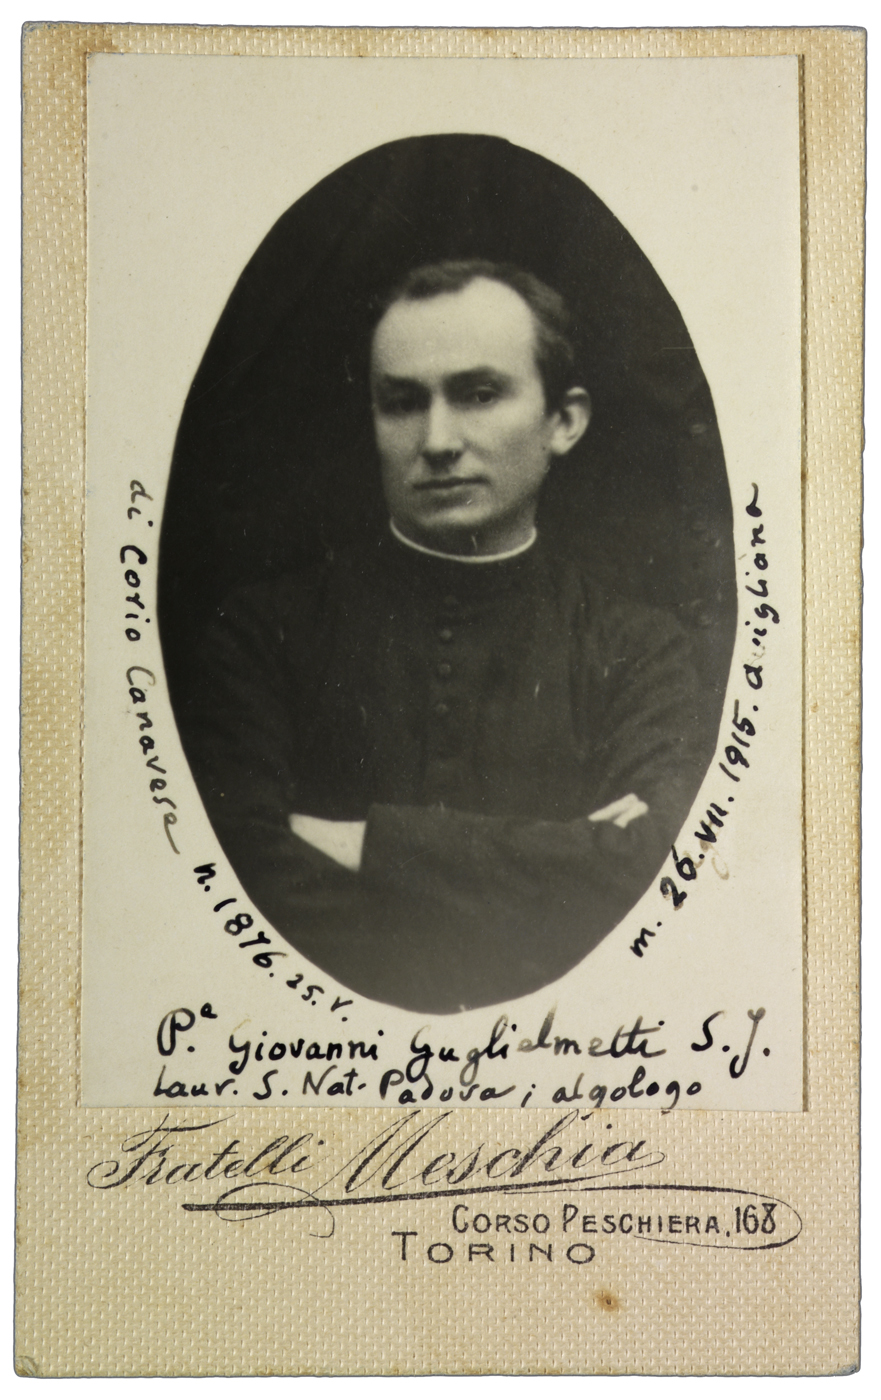 di Corio Canavese
n. 1876. 25. V.
m. 26. VII. 1915. Avigliana
P.ª Giovanni Guglielmetti S. J.
Laur. S. Nat. Padova; algologo
Fratelli Meschia
CORSO PESCHIERA, 168
TORINO